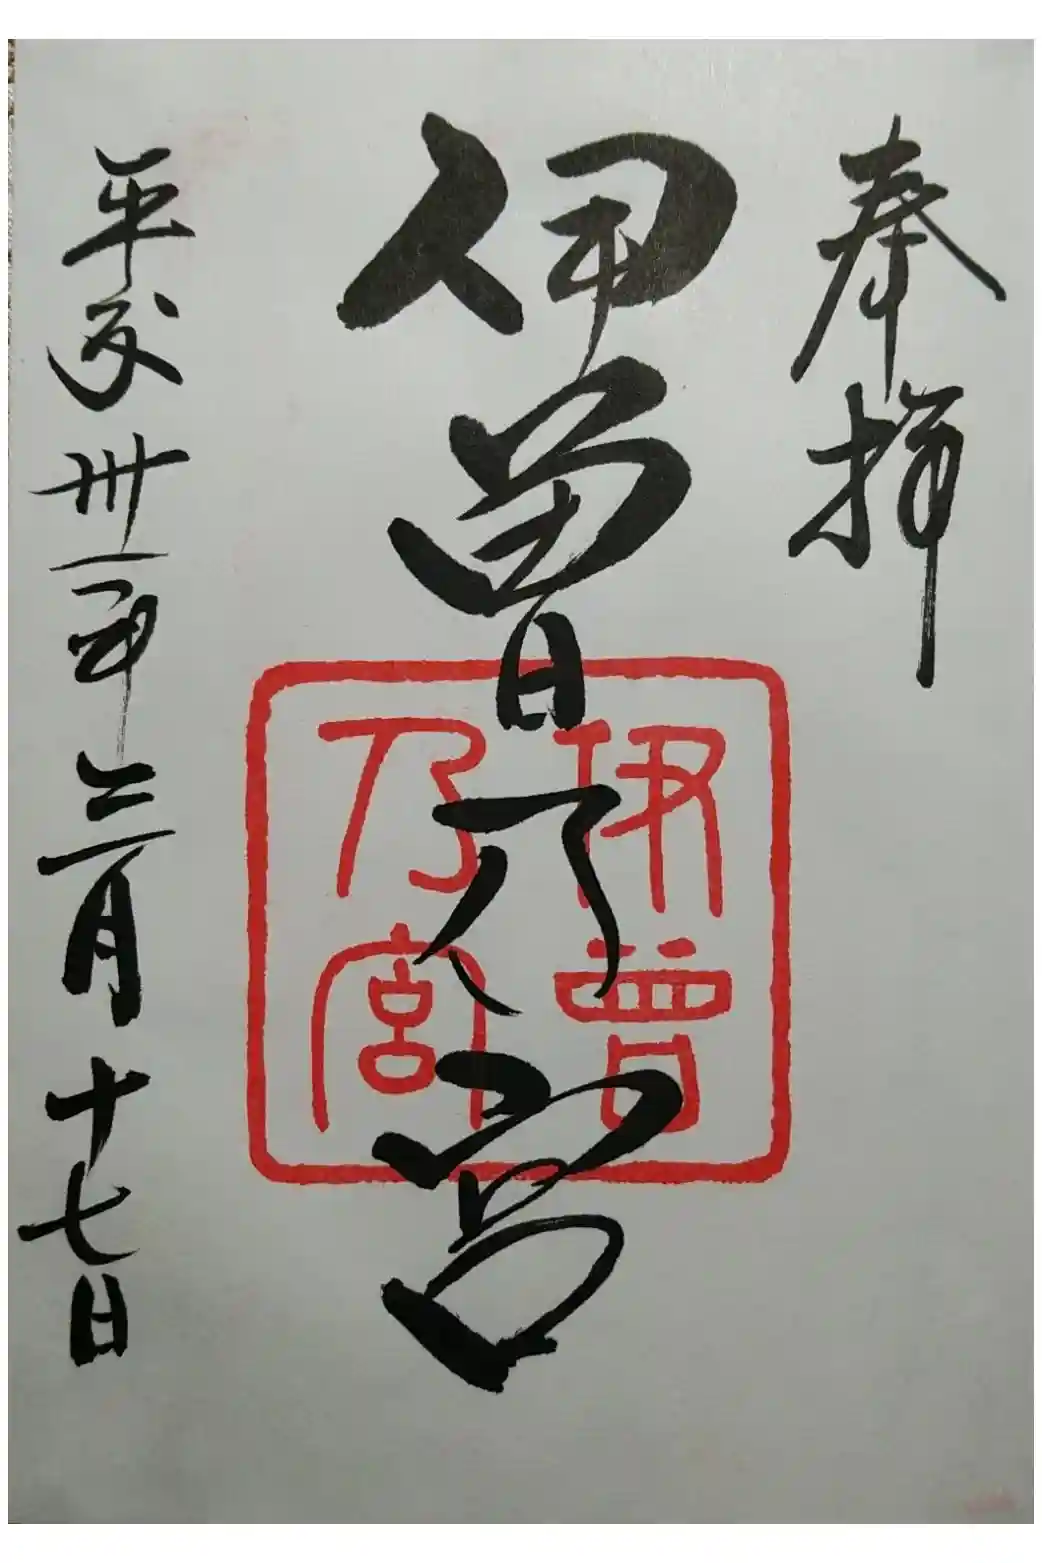 奉拝
伊曽乃宮
伊曽
乃宮
平成卅一年三月十七日